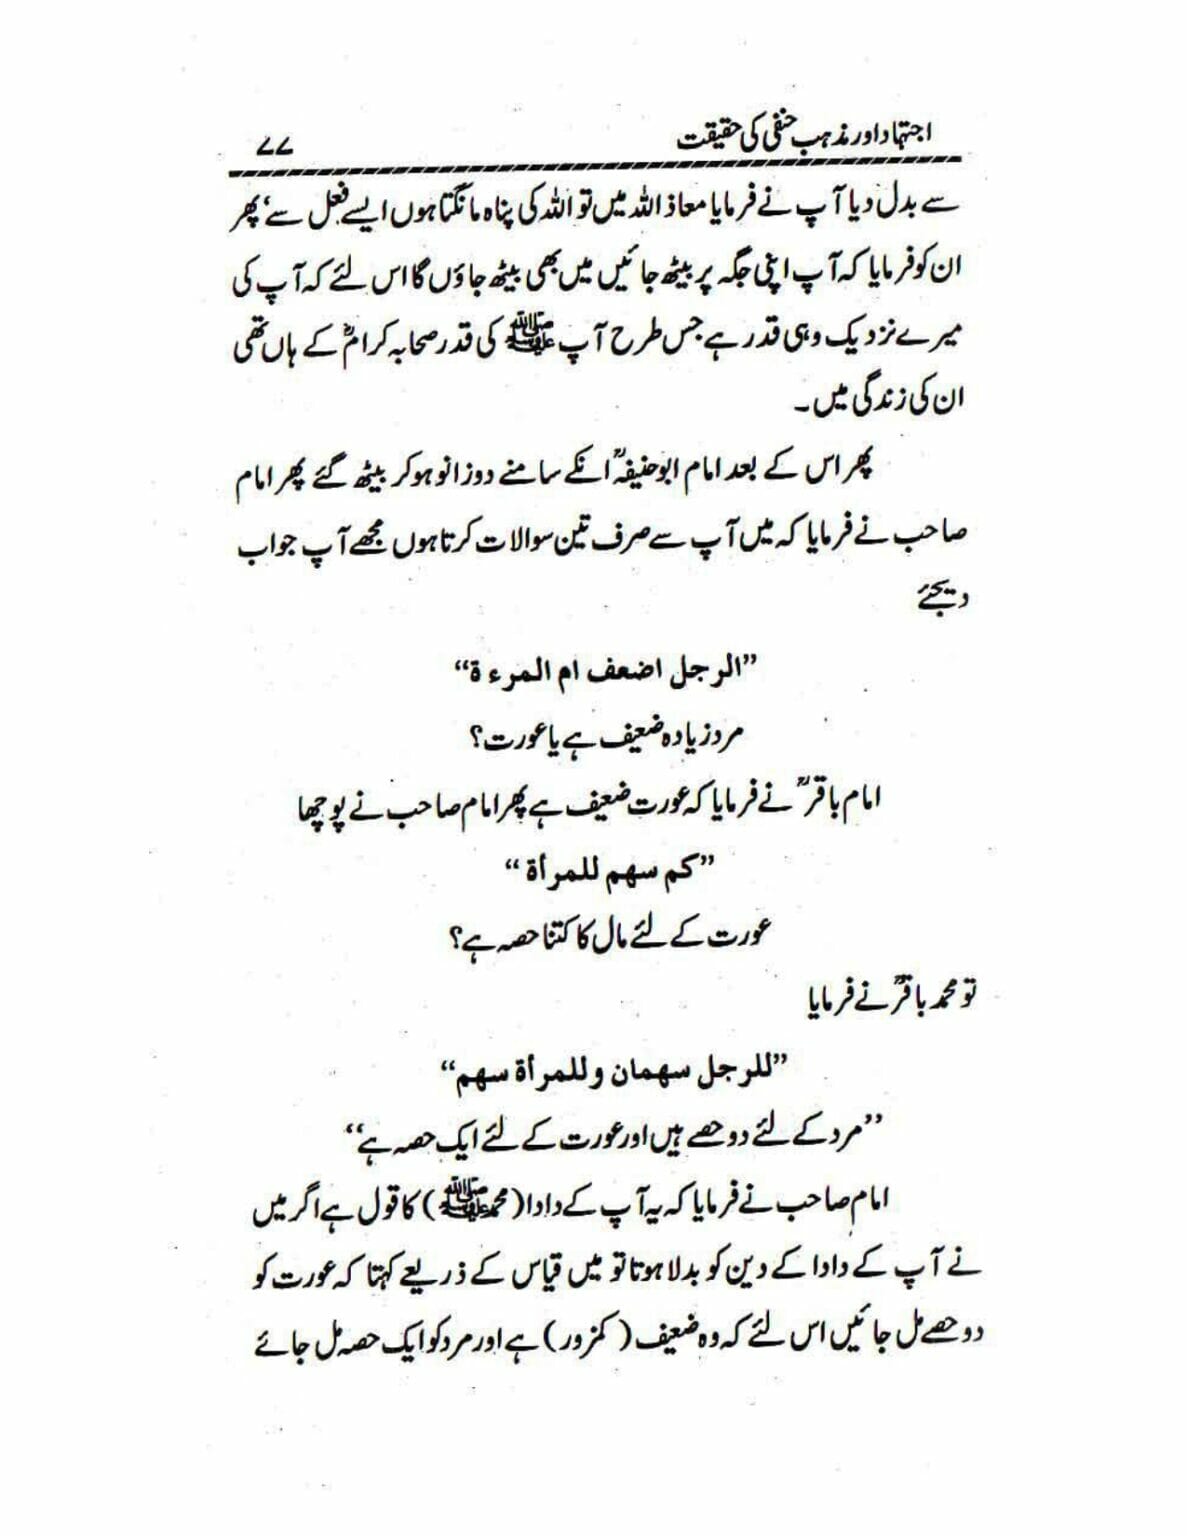 اجتہاد اور مذہب حنفی کی حقیقت ۷۷
سے بدل دیا آپ نے فرمایا معاذ اللہ میں تو اللہ کی پناہ مانگتا ہوں ایسے فعل سے، پھر
ان کو فرمایا کہ آپ اپنی جگہ پر بیٹھ جائیں میں بھی بیٹھ جاؤں گا اس لئے کہ آپ کی
میرے نزدیک وہی قدر ہے جس طرح آپ ﷺ کی قدر صحابہ کرامؓ کے ہاں تھی
ان کی زندگی میں۔
پھر اس کے بعد امام ابو حنیفہؒ انکے سامنے دوزانو ہو کر بیٹھ گئے پھر امام
صاحب نے فرمایا کہ میں آپ سے صرف تین سوالات کرتا ہوں مجھے آپ جواب
دیجئے
”الرجل اضعف ام المرءة“
مرد زیادہ ضعیف ہے یا عورت؟
امام باقرؒ نے فرمایا کہ عورت ضعیف ہے پھر امام صاحب نے پوچھا
”کم سهم للمرأة“
عورت کے لئے مال کا کتنا حصہ ہے؟
تو محمد باقرؒ نے فرمایا
”للرجل سهمان وللمرأة سهم“
”مرد کے لئے دو حصے ہیں اور عورت کے لئے ایک حصہ ہے“
امام صاحب نے فرمایا کہ یہ آپ کے دادا (محمد ﷺ) کا قول ہے اگر میں
نے آپ کے دادا کے دین کو بدلا ہوتا تو میں قیاس کے ذریعے کہتا کہ عورت کو
دو حصے مل جائیں اس لئے کہ وہ ضعیف (کمزور) ہے اور مرد کو ایک حصہ مل جائے